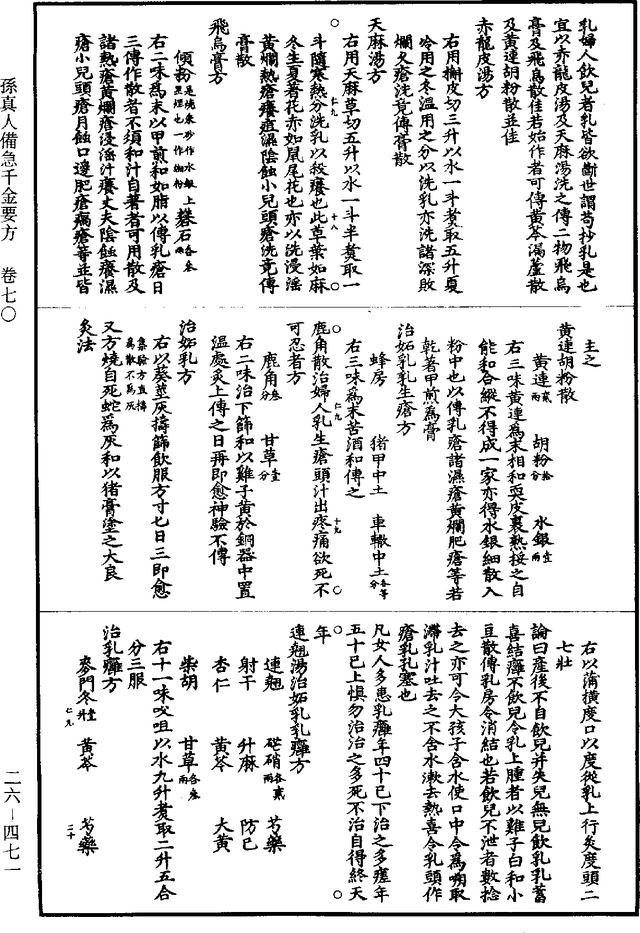 乳婦人飲兒者乳皆欲斷世謂苟抄乳是也
宜以赤龍皮湯及天麻湯洗之傅二物飛烏
膏及飛烏散佳若始作者可傅黃芩漏蘆散
及黃連胡粉散並佳
赤龍皮湯方
右用槲皮切三升以水一斗煮取五升夏
冷用之冬溫用之分以洗乳亦洗諸深敗
爛久瘡洗竟傅膏散
天麻湯方
右用天麻草切五升以水一斗半煮取一
斗隨寒熱分洗乳以殺癢也此草葉如麻
冬生夏著花赤如鼠尾花也亦以洗浸淫
黃爛熱瘡癢疽濕陰蝕小兒頭瘡洗竟傅
膏散
飛烏膏方
傾粉是燒朱砂作水銀上黑煙也一作湘粉 礬石各叁兩
右二味為末以甲煎和如脂以傅乳瘡日
三傅作散者不須和汁自著者可用散及
諸熱瘡黃爛瘡浸淫汁癢丈夫陰蝕癢濕
瘡小兒頭瘡月蝕口邊肥瘡瘑瘡等並皆
主之
黃連胡粉散
黃連貳兩 胡粉拾分 水銀壹兩
右三味黃連為末相和耎皮裹熟挼之自
能和合縱不得成一家亦得水銀細散入
粉中也以傅乳瘡諸濕瘡黃爛肥瘡等若
乾著甲煎為膏
治妬乳乳生瘡方
蜂房 豬甲中土 車轍中土各等分
右三味為末苦酒和傅之
鹿角散治婦人乳生瘡頭汁出疼痛欲死不
可忍者方
鹿角叁分 甘草壹分
右二味治下篩和以雞子黃於銅器中置
溫處炙上傅之日再即愈神驗不傳
治妬乳方
右以葵莖灰擣篩飲服方寸七日三即愈
集驗方直擣為散不為灰
又方燒自死蛇為灰和以猪膏塗之大良
灸法
右以蒲橫度口以度從乳上行灸度頭二
七壯
論曰產後不自飲兒并失兒無兒飲乳乳蓄
喜結癰不飲兒令乳上腫者以雞子白和小
豆散傅乳房令消結也若飲兒不泄者數捻
去之亦可令大孩子含水使口中令為嗍取
滯乳汁吐去之不含水漱去熱喜令乳頭作
瘡乳乳塞也
凡女人多患乳癰年四十已下治之多瘥年
五十已上慎勿治治之多死不治自得終天
年
連翹湯治妬乳乳癰方
連翹 芒硝各貳兩 芍藥
射干 升麻 防已
杏仁 黃芩 大黃
柴胡 甘草各叁兩
右十一味㕮咀以水九升煮取二升五合
分三服
治乳癰方
麥門冬壹升 黃芩 芍藥
孫真人備急千金要方 卷七〇
二六－四七一